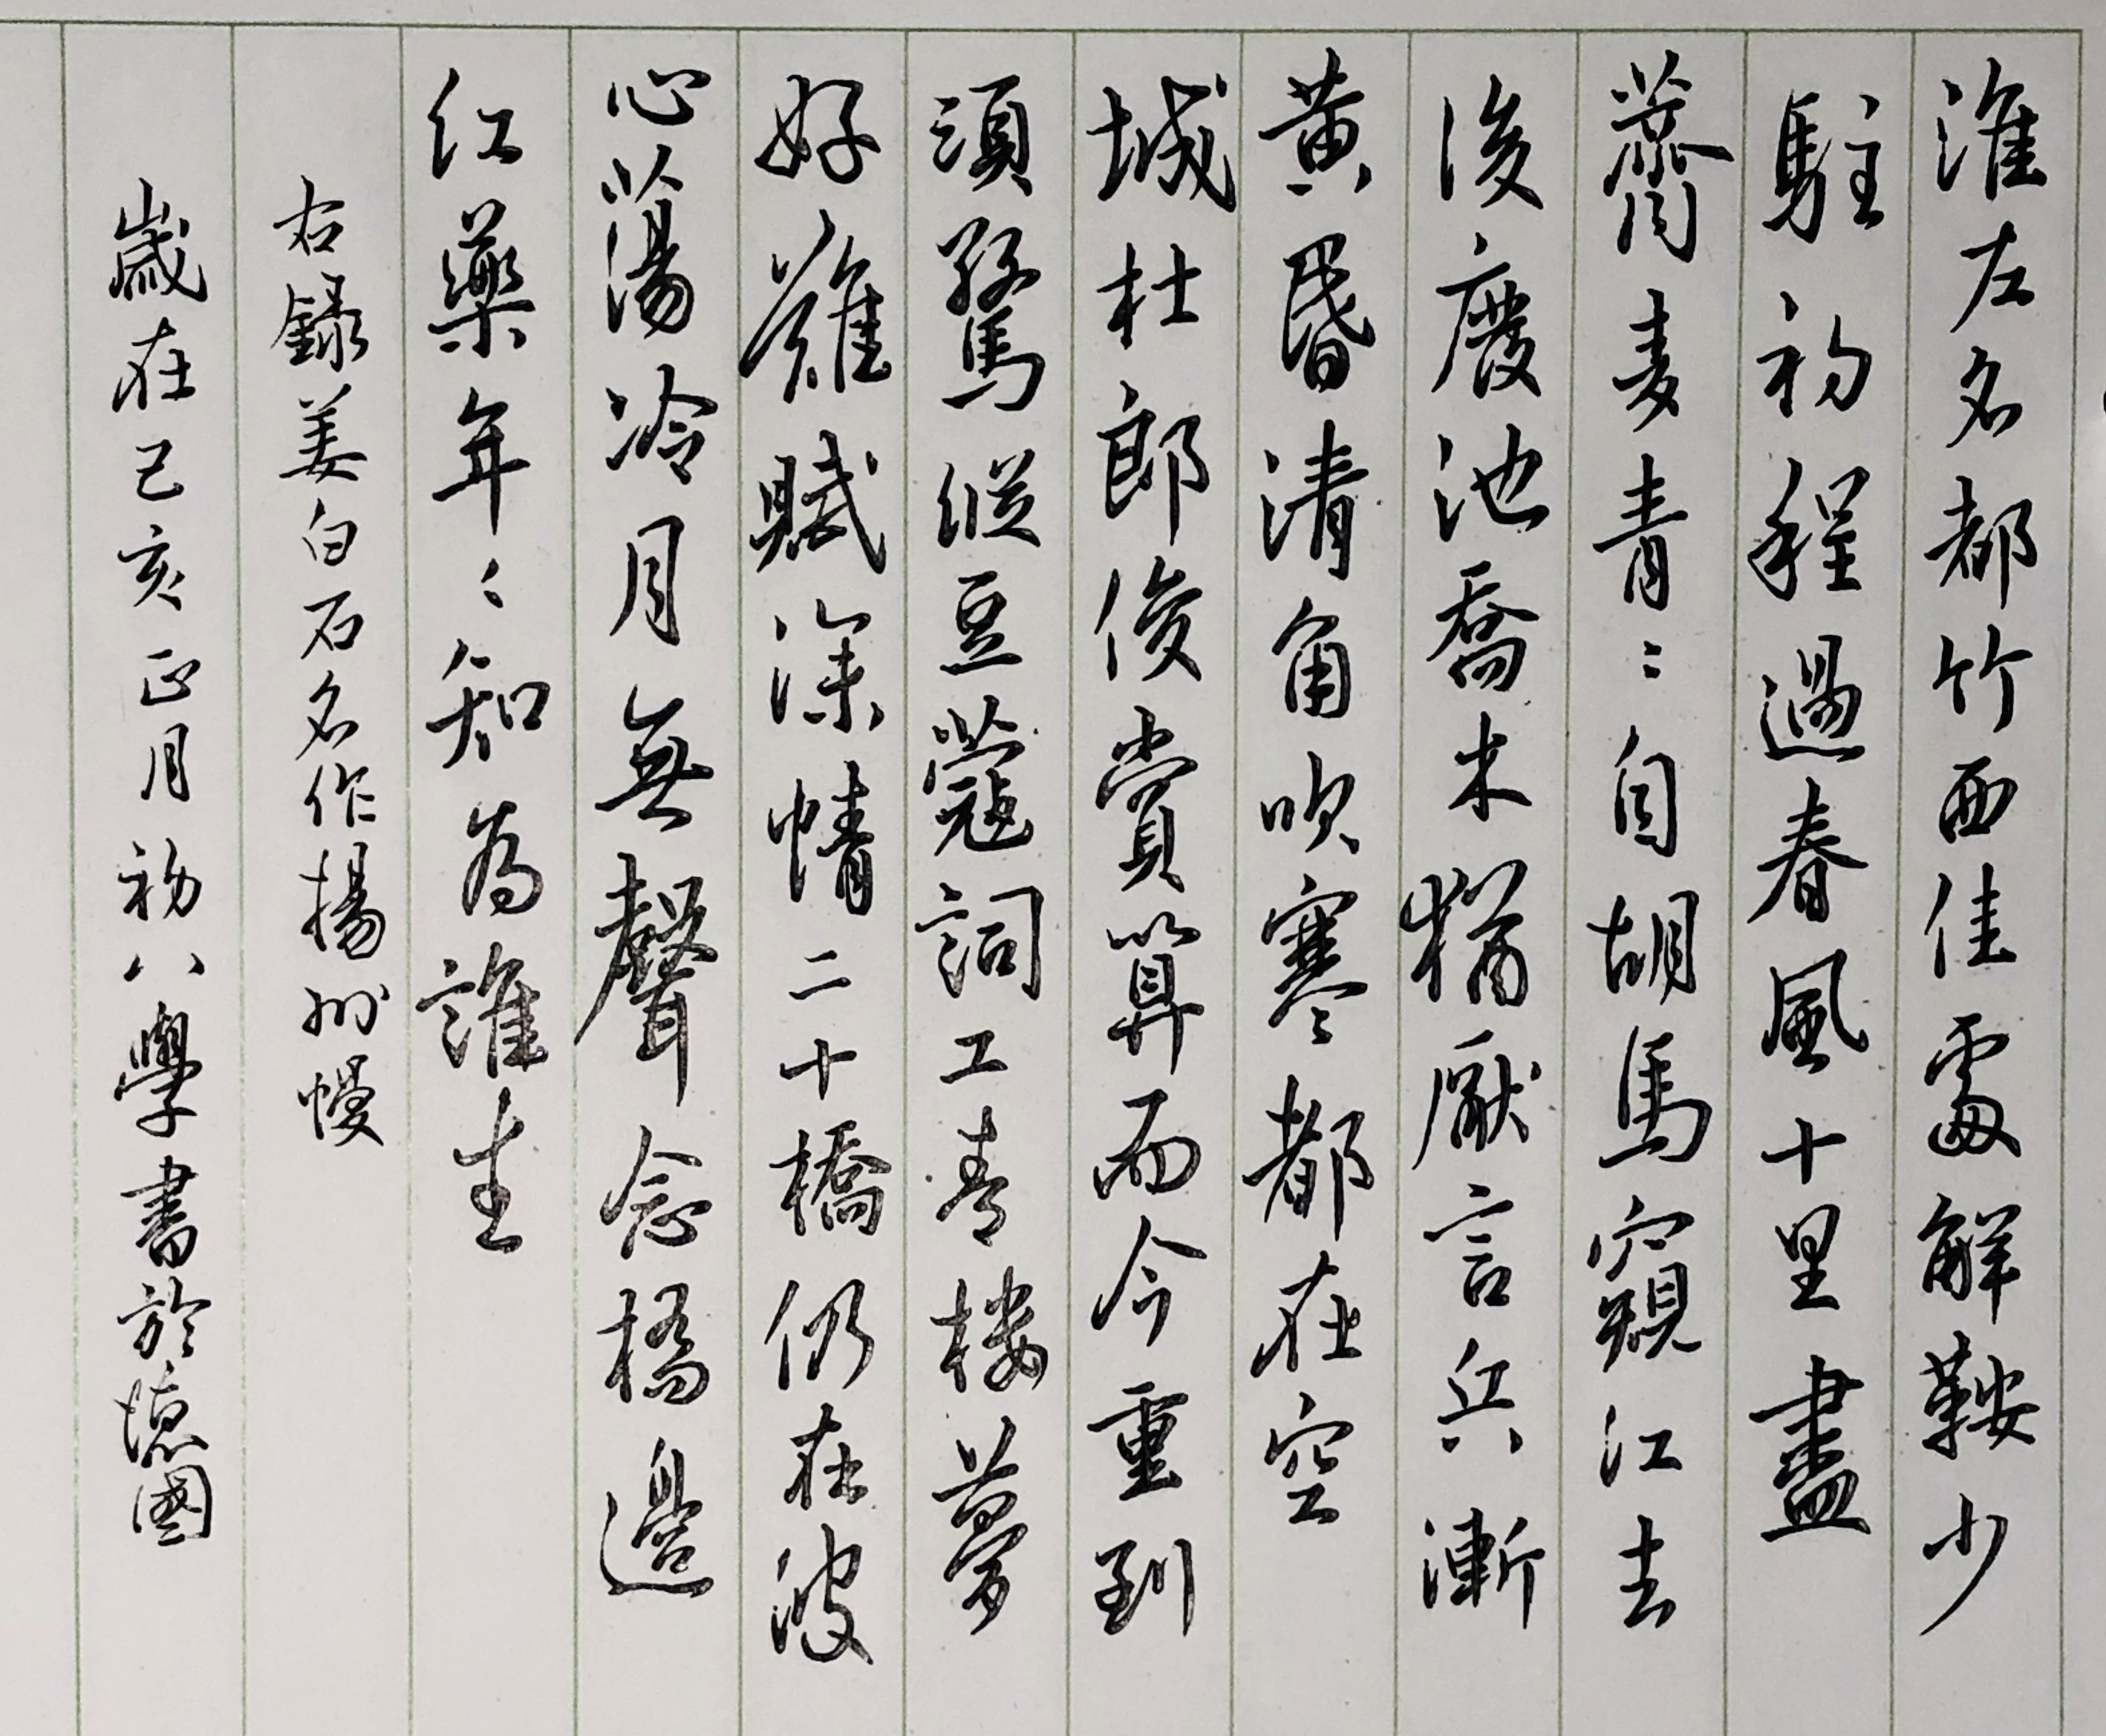 淮左名都竹西佳處解鞍少
駐初程過春風十里盡
薺麦青〻自胡馬窺江去
後廢池喬木猶厭言兵漸
黄昏清角吹寒都在空
城杜郎俊賞算而今重到
須驚縱豆蔻詞工青楼夢
好難賦深情二十橋仍在波
心蕩冷月無聲念橋邊
红藥年〻知為誰生
右録姜白石名作揚州慢
歲在己亥正月初八學書於德國